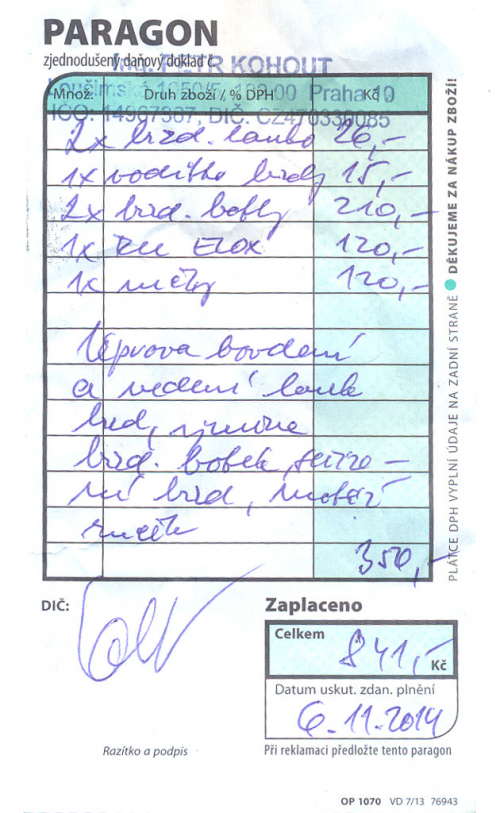 PARAGON
zjednodušený daňový doklad č.
Ing. PETR KOHOUT
00 Praha 10
Množ. Druh zboží / % DPH Kč
IČO: 14967367, DIČ: CZ470330085
2x brzd. lanko 26,-
1x vodítko brzdy 15,-
2x brzd. botky 210,-
1x ELOX 120,-
1x 120,-
Úprava bovdenů
a vedení lanek
brzd, výměna
brzd. botek, seříze-
ní brzd, montáž
350,-
DIČ:
Zaplaceno
Celkem 841,- Kč
Datum uskut. zdan. plnění
6.11.2014
Razítko a podpis
Při reklamaci předložte tento paragon
OP 1070 VD 7/13 76943
PLÁTCE DPH VYPLNÍ ÚDAJE NA ZADNÍ STRANĚ ● DĚKUJEME ZA NÁKUP ZBOŽÍ!